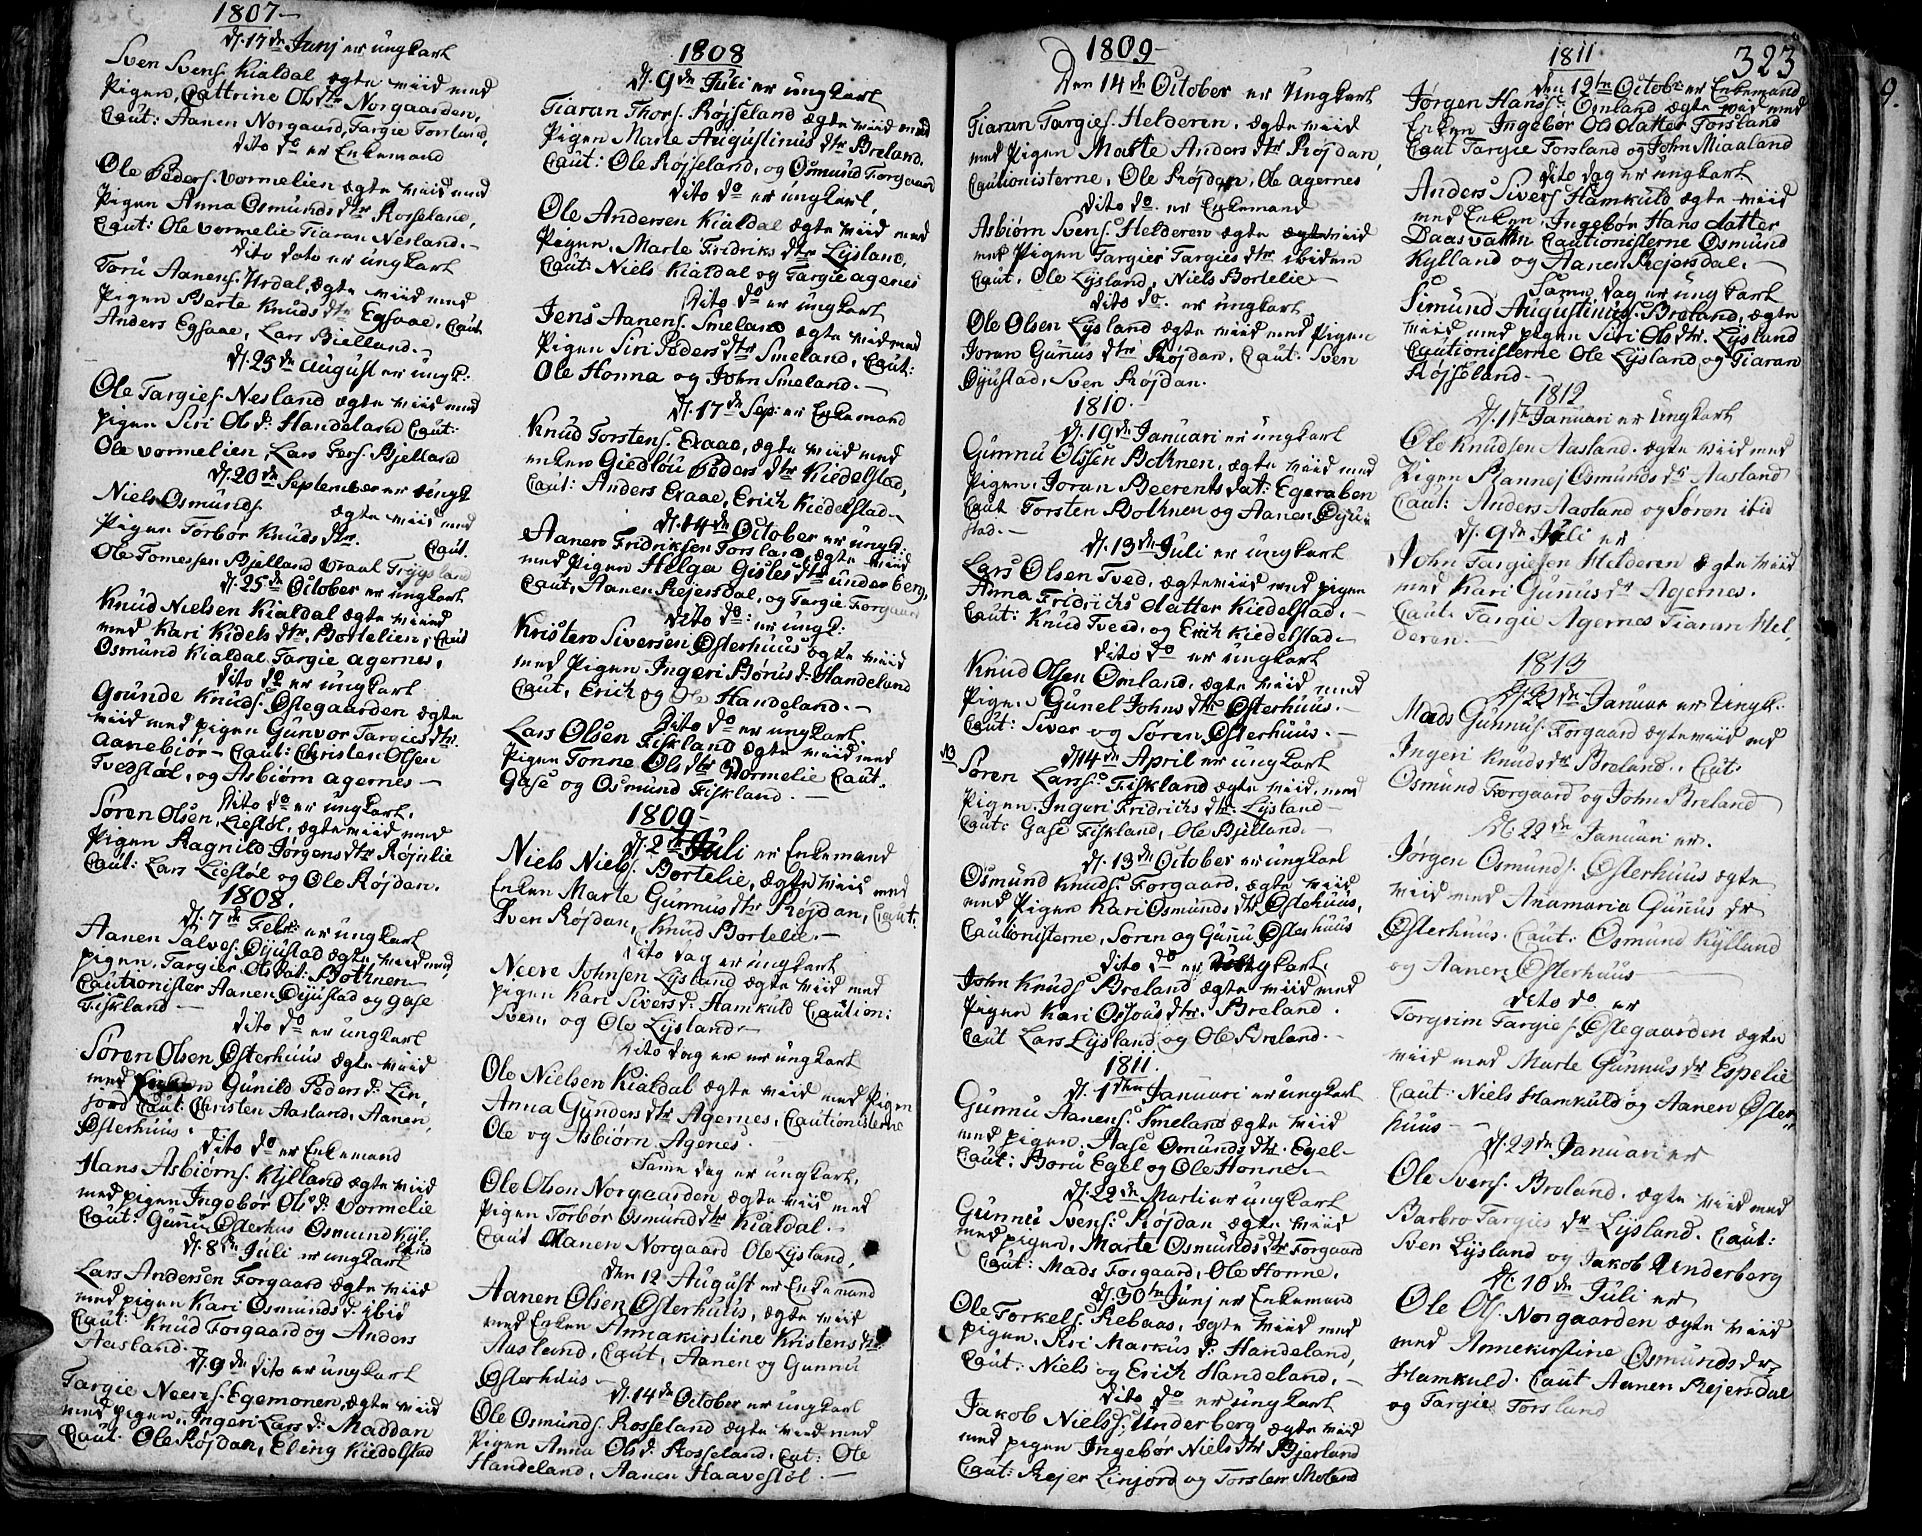 1807
d. 17de Junj er ungkarl
Sven Svens. Kialdal ægte viid med
Pigen, Cattrine Ols dtr Norgaarden,
Caut: Aanen Norgaard, Targie Forsland,
Dito do er Enkemand
Ole Peders. Vormelien ægte viid med
Pigen Anna Osmunds dtr Rosseland,
Caut: Ole Vormelie Tiaran Nesland.
Dito dato er ungkarl
Toru Aanens. Urdal, ægte viid med
Pigen Berte Knuds dtr Egsaae, Caut
Anders Egsaae, Lars Bielland.
d. 25de August er ungk:
Ole Targies. Nesland ægte viid med
pigen Siri Ols d: Handeland Caut:
Ole Vormelien, Lars Bjelland
d. 20de September er ungk
Niels Osmunds. ægte viid med
Pigen Torbor Knuds dtr. Caut.
Ole Tomessen Bjelland Vraal Trygsland
d. 25de October er ungkarl
Knud Nielsen Kialdal ægte viid
med Kari Kidels dtr Bortelien, Caut
Osmund Kialdal Targie Agernes,
Dito do er ungkarl
Grunde Knuds. Østegaarden ægte
viid med pigen Gunvor Targies dtr.
Aanebiør Caut: Christen Olsen
Tvedstøl, og Asbiørn Agernes
Dito do er ungkarl,
Søren Olsen, Liestøl, ægte viid med
Pigen Ragnild Jørgens dtr Røjnlie
Caut: Lars Liestøl og Ole Røjdan.
1808.
d. 7de Febr: er ungkarl
Aanen Talves. Øyustad ægte viid med
pigen, Targier Ols Dat: Bothnen
Cautionister Aanen Øyustad og Gase
Fiskland
Dito do er ungkarl
Søren Olsen Østerhuus ægte viid
med Gunild Peders d: Lin,
jord Caut: Christen Aasland, Aanen,
Østerhuus.
Dito do er Enkemand
Hans Asbiørns. Kylland ægte viid
med pigen Ingebør Ols d: Vormelie
Caut: Gunnu Østerhus Osmund Kyl-
land
d. 8de Juli er ungkarl
Lars Andersen Forgaard ægte viid
med pigen Kari Osmunds d. ibid
Caut: Knud Forgaard og Anders
Aasland.
d. 9de Dito er ungkarl
Targie Neeres. Egemonen, ægte viid
med pigen, Ingeri Lars d: Maddan
Caut. Ole Røjdan, Eling Kieddelstad
1808
d. 9de Juli er ungkarl
Tiaran Thors. Røjseland ægte viid med
Pigen Marte Augustinus dtr Breland.
Caut: Ole Røjseland, og Osmund Forgaard
Dito do er ungkarl
Ole Andersen Kialdal ægte viid med
Pigen, Marte Fridriks dtr Lysland,
Caut: Niels Kialdal og Targie Agenes
Dito do er ungkarl
Jens Aanens. Smeland ægte viid med
Pigen Siri Peders dtr Smeland, Caut:
Ole Honna og John Smeland.
d. 17de Sep: er Enkemand
Knud Torstens. Exaae, ægte viid med
enken Giedlou Peders dtr Kiedelstad,
Caut: Anders Exaae, Erich Kiedelstad
d. 14de October er ungk:
Aanen Fridriksen Forsland, ægte viid
med Pigen Helga Gisles dtr underberg,
Caut, Aanen Rejersdal, og Targie Forgaard
Dito do: er ungk:
Kristen Siversen Østerhuus ægte viid
med Pigen Ingeri Børus d: Handeland
Caut, Erich og Ole Handeland.
Dito do er ungkarl
Lars Olsen Fiskland ægte viid med
Pigen Tonne Ols dtr Vormelie Caut.
Gase og Osmund Fiskland.
1809
d. 2de Juli er Enkemand
Niels Niels. Bortelie, ægte viid med
Enken Marte Gunnus dtr Røjdan, Caut.
Sven Røjdan, Knud Bortelie.
Dito dag er ungkarl
Neere Johnsen Lysland ægte viid med
pigen Kari Sivers d: Hamkuld Caution:
Sven, og Ole Lysland
Dito dag er er ungkarl
Ole Nielsen Kialdal ægte viid med Pigen
Anna Gunders dtr Agernes, Cautionisterne
Ole og Asbiørn Agenes.
Same dag er ungkarl,
Ole Olsen Norgaarden ægte viid med
Pigen Torbor Osmund dtr Kialdal.
Caut Aanen Norgaard Ole Lysland,
den 12 August er Enkemand
Aanen Olsen Østerhuus, ægte viid
med Enken Annakirstine Kristens dtr
Aasland, Caut, Aanen og Gunnu
Østerhuus
d. 14de October er ungkarl
Ole Osmunds. Rosseland ægte viid med
Pigen Anna Ols d: Rosseland, Caut: Ole
Handeland, Aanen Haavestøl.
1809
Den 14de October er Ungkarl
Tiaran Targies. Helderen, ægte viid
med Pigen Marte Anders dtr Røjdan,
Cautionisterne, Ole Røjdan, Ole Agernes
Dito do. er Enkemand
Asbiørn Svens. Helderen ægte ægte viid
med Pigen Targier Targies dtr ibidem
Caut. Ole Lysland, Niels Bortelie
Dito do. er ungkarl
Ole Olsen Lysland ægte viid med Pigen
Joran Gunnus dtr Røjdan, Caut: Sven
Øyustad, Sven Røjdan.
1810.
d. 19de Januari er ungkarl
Gunnu Olssen Bothnen, ægte viid med
Pigen, Joran Beerents Dat: Egeraben
Caut Torsten Bothnen og Aanen Øyu-
stad.
d. 13de Juli er ungkarl
Lars Olsen Tved, ægte viid med pigen
Anna Fridrichs datter Kiedelstad.
Caut: Knud Tveed, og Erich Kiedelstad
Dito do er ungkarl
Knud Olsen Omland, ægte viid med
Pigen Gunel Johns dtr Østerhuus.
Caut: Siver og Søren Østerhuus.
d. 14de April er ungkarl
Søren Lars. Fiskland ægte viid, med
Pigen, Ingeri Fridrichs dtr. Lysland
Caut: Gase Fiskland, Ole Bjelland.
d. 13de October er ungkarl
Osmund Knuds. Forgaard, ægte viid
med Pigen Kari Osmunds dtr Østehuus,
Cautionisterne, Søren og Gunnu Østerhuus
Dito do er kart.
John Knuds Breland ægte viid med
Pigen Kari Ossous dtr. Breland.
Caut Lars Lysland og Ole Breland.
1811.
d. 1ten Januari er ungkarl
Gunnu Aanens. Smeland ægte viid
med pigen, Aase Osmunds dtr. Egel-
Caut: Boru Egel og Ole Honne.
d. 22de Marti er ungkarl
Gunnu Svens. Røjdan ægte viid
med pigen, Marte Osmunds dtr Forgaard
Caut: Mads Forgaard, Ole Honne.
d. 30te Junj er Enkemand
Ole Torkels. Rebaas, ægte viid med
pigen, Siri Markus d: Handeland,
Caut: Niels og Erich Handeland.
Dito do er ungkarl
Jakob Niels. Underberg ægte viid
med pigen Ingebør Niels dtr Bjerland
Caut: Rejer Linjord og Torsten Moland
1811
323
den 12te Octobr er Enkemand
Jørgen Hans. Omland ægte viid med
Enken Ingebør Ols datter Forsland
Caut Targie Forsland og John Miaaland
Dito dag er ungkarl
Anders Sivers Hamkuld ægte viid
med Enken, Ingebør Hans datter
Daasvattn Cautionisterne Osmund
Kylland og Aanen Rejersdal.
Same dag er ungkarl
Simund Augustinus. Breland, ægte
viid med pigen Siri Ols dtr. Lysland
Cautionisterne Ole Lysland og Tiaran
Røjseland
1812
d. 11te Januari er Ungkarl
Ole Knudsen Aasland. ægte viid med
Pigen Rannej Osmunds dr Aasland
Caut: Anders Aasland og Søren ibid
d. 9de Juli er
John Targiesen Helderen ægte viid
med Kari Gunnus dr Agernes.
Caut. Targie Agernes Tiaran Hel,
deren.
1813
d. 22de Januar er Ungk:
Mads Gunnus. Forgaard ægte viid med
Ingeri Knuds dr Breland. Caut.
Osmund Forgaard og John Breland
d. 22de Januari er.
Jørgen Osmunds. Østerhuus ægte
viid med Anamaria Gunnus dr
Østerhuus. Caut: Osmund Kylland
og Aanen Østerhuus
Dito do er
Torgrim Targies. Østegaarden ægte
viid med Marte Gunnus dr Espelie
Caut: Niels Hamkuld og Aanen Øster,
huus
d. 22de Januari er
Ole Svens. Breland, ægte viid med
Barbro Targies dr Lysland. Caut:
Sven Lysland og Jakob Underberg
d. 10de Juli er
Ole Ols. Norgaarden ægte viid
med Annekirstine Osmunds dr
Hamkuld. Caut Aanen Rejersdal
og Targie Forsland